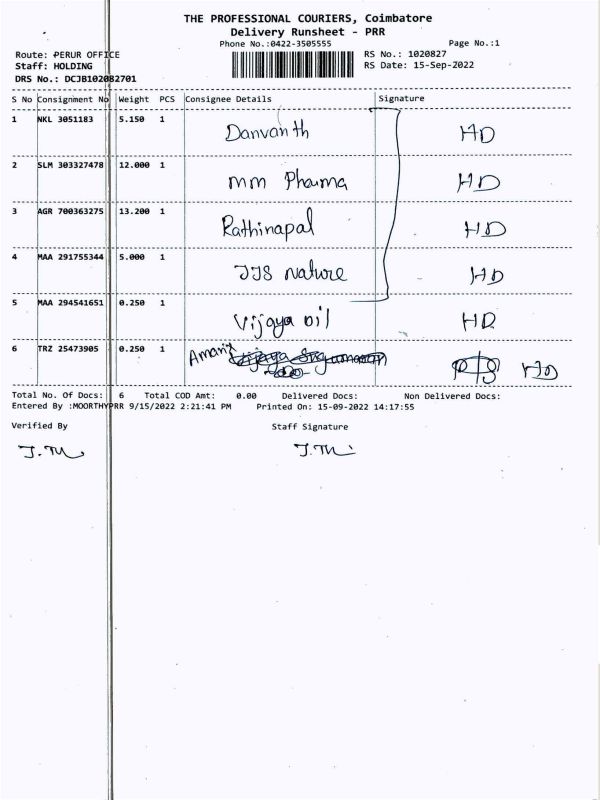 THE PROFESSIONAL COURIERS, Coimbatore
Delivery Runsheet - PRR
Phone No.:0422-3505555 Page No.:1
Route: PERUR OFFICE RS No.: 1020827
Staff: HOLDING RS Date: 15-Sep-2022
DRS No.: DCJB102082701
S No Consignment No Weight PCS Consignee Details Signature
1 NKL 3051183 5.150 1 Danvanth HD
2 SLM 303327478 12.000 1 mm Pharma HD
3 AGR 700363275 13.200 1 Rathinapal HD
4 MAA 291755344 5.000 1 JJS Nature HD
5 MAA 294541651 0.250 1 Vijaya oil HD
6 TRZ 25473905 0.250 1 HD
Total No. Of Docs: 6 Total COD Amt: 0.00 Delivered Docs: Non Delivered Docs:
Entered By :MOORTHYPRR 9/15/2022 2:21:41 PM Printed On: 15-09-2022 14:17:55
Verified By Staff Signature